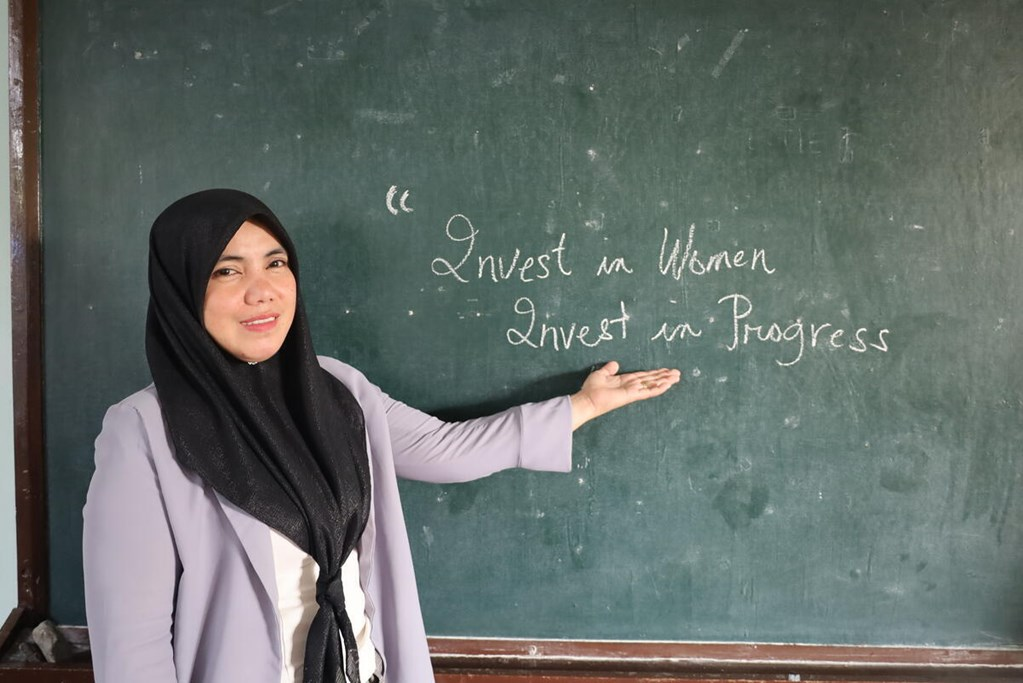 “ Invest in Women
Invest in Progress